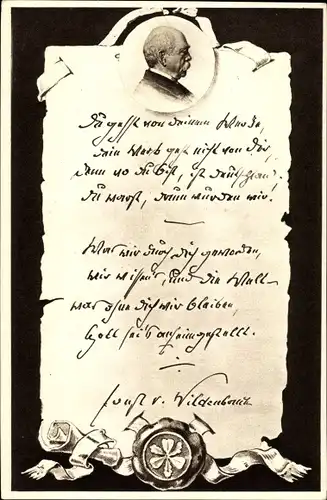 Du gehst von deinem Werke,
dein Werk geht nicht von dir,
denn wo du bist, ist Deutschland,
du warst, drum wurden wir.
Was wir durch dich geworden,
wir wissens, und die Welt –
was ohne dich wir bleiben,
Gott sei's anheimgestellt.
Ernst v. Wildenbruch